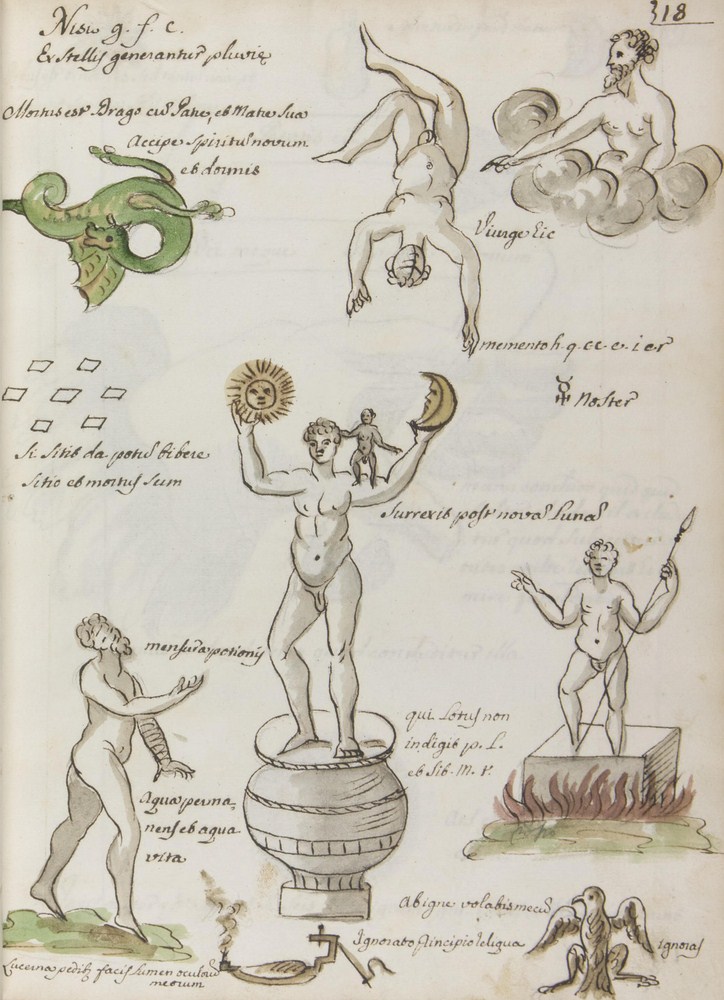 318
Nisi g. f. c.
Ex stellis generantur pluvię
Mortus est Drago cũ Patre, et Matre sua
Accipe spiritus novum
et dormis
Viurge Eic
memento h. q. c c. e. i e r
Noster
Si sitis da potus bibere
sitio et mortus sum
surrexit post novã Lunã
mensura potionis
qui Lotus non
indigit p. L.
et sit. M. V.
Aqua perma,
nens et aqua
vita
Ab igne volabis mecũ
Ignorato Principio reliqua
ignoras
Lucerna pedibus facis Lumen oculorũ
meorum